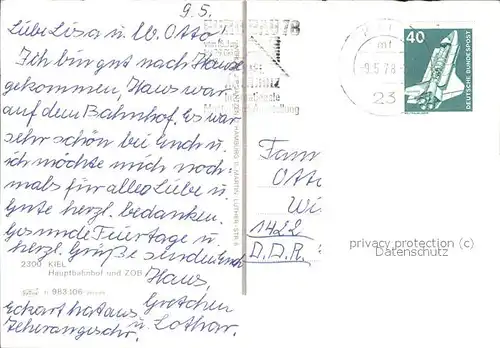 9.5.
Liebe Lisa u. W. Otto!
Ich bin gut nach Hause
gekommen, Hans war
auf dem Bahnhof. Es war
sehr schön bei Euch u.
ich möchte mich noch
mals für alles Liebe u.
Gute herzl. bedanken.
Gesunde Feiertage u.
herzl. Grüße senden Euch
Hans,
Gretchen
u. Lothar.
Eckart hat aus
angeschr.
2300 KIEL
Hauptbahnhof und ZOB
983106
HAMBURG MARTIN LUTHER-STR.
78
Internationale
Ausstellung
-9.5.78-
23
40
DEUTSCHE BUNDESPOST
Fam
Otto
1422
D.D.R.
privacy protection (c)
Datenschutz